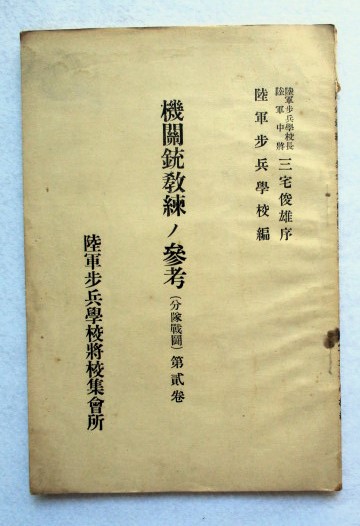 陸軍步兵學校長
陸軍中將
三宅俊雄序
陸軍步兵學校編
機關銃敎練ノ參考(分隊戰鬪)第貳卷
陸軍步兵學校將校集會所